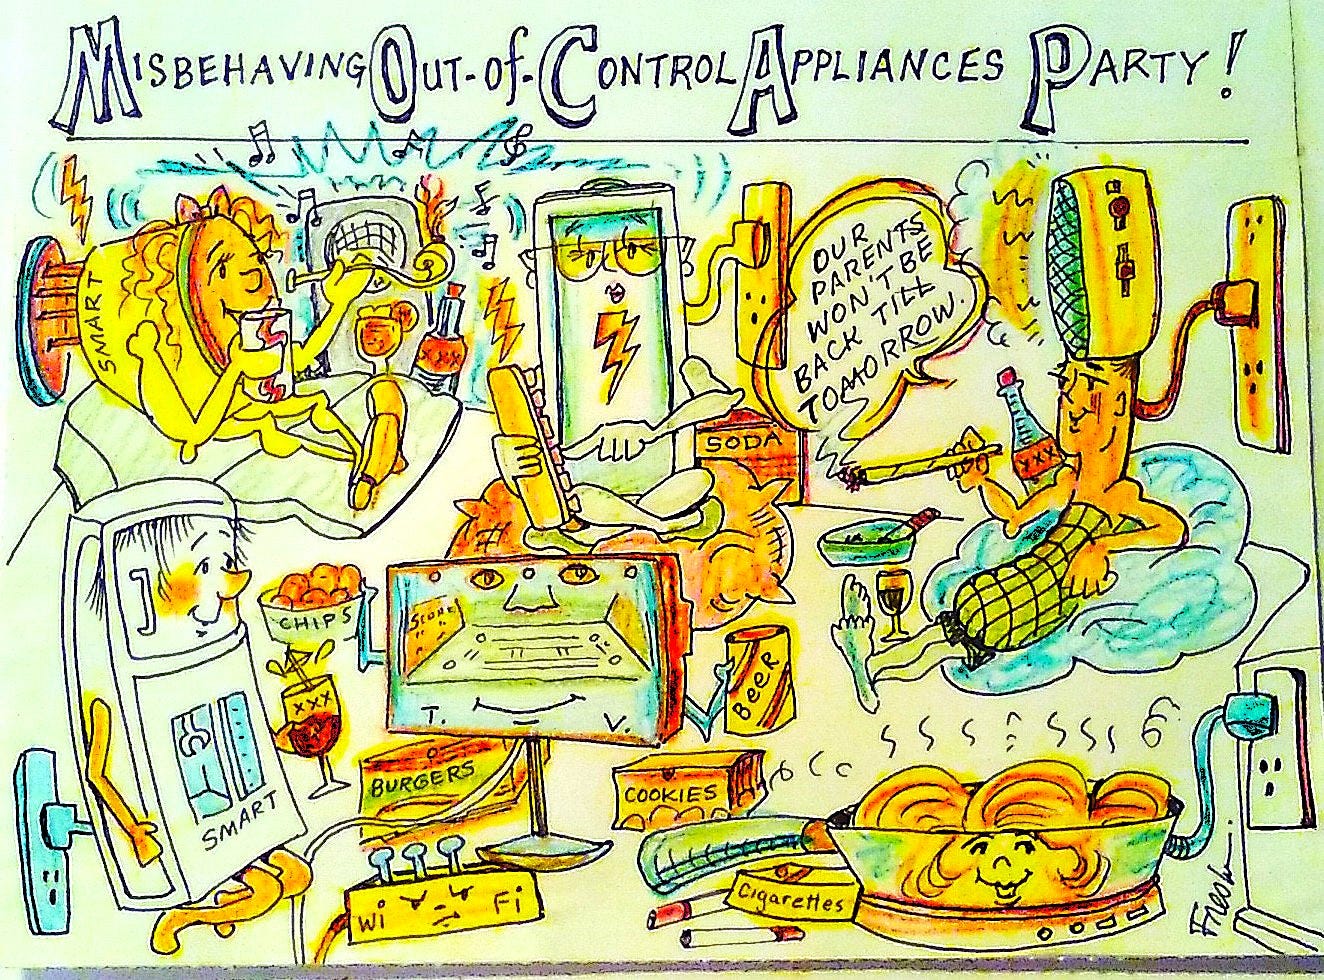 MISBEHAVING OUT-OF-CONTROL APPLIANCES PARTY!
SMART
XXX
OUR
PARENTS
WON'T BE
BACK TILL
TOMORROW.
SODA
XXX
CHIPS
SCORE
XXX
T. V.
BEER
BURGERS
SMART
COOKIES
Wi Fi
Cigarettes